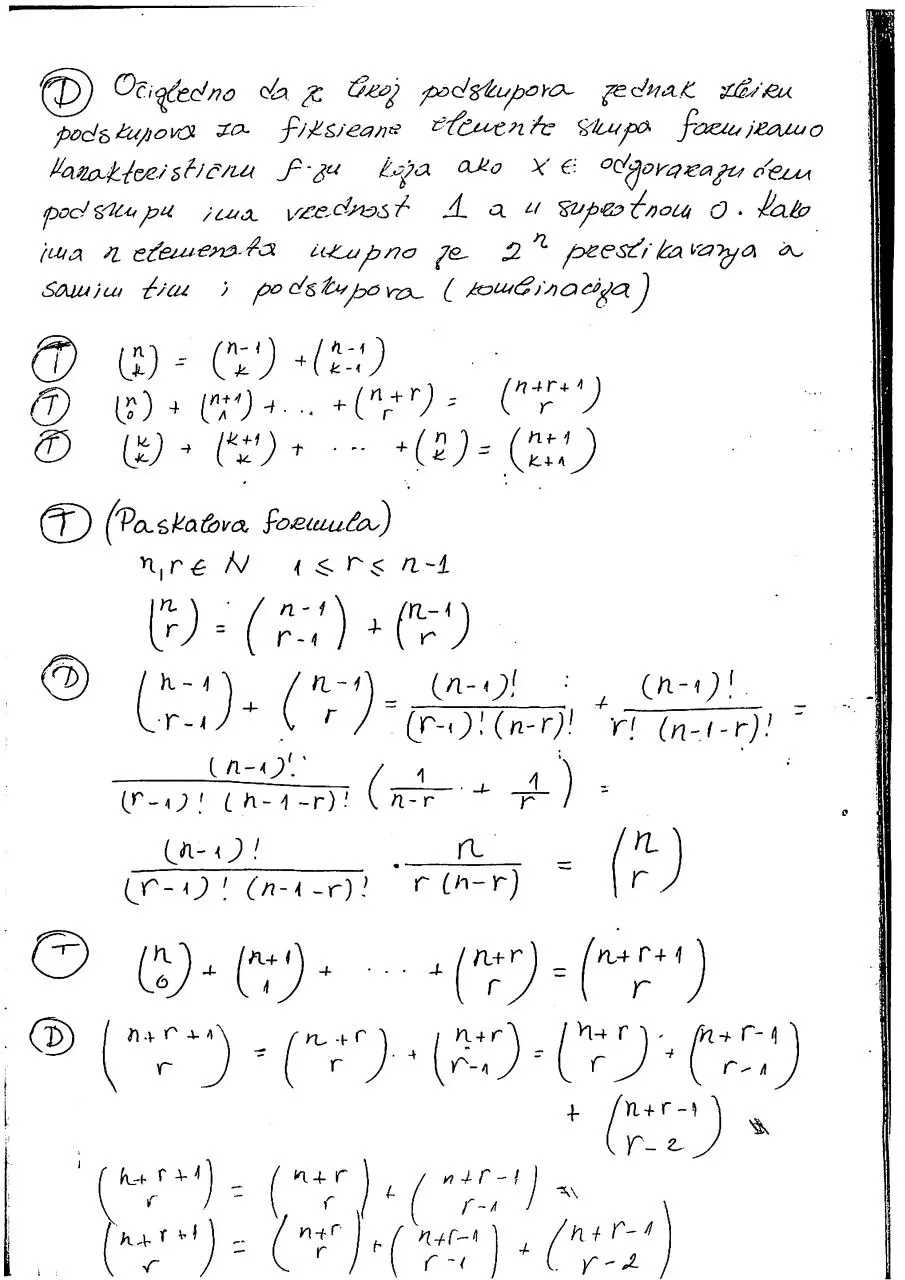 Ⓓ Očigledno da je broj podskupova jednak zbiru
podskupova za fiksirane elemente skupa formiramo
karakterističnu f-ju koja ako x ∈ odgovarajućem
podskupu ima vrednost 1 a u suprotnom 0. Kako
ima n elemenata ukupno je 2^n preslikavanja a
samim tim i podskupova (kombinacija)
Ⓣ \binom{n}{k} = \binom{n-1}{k} + \binom{n-1}{k-1}
Ⓣ \binom{n}{0} + \binom{n+1}{1} + ... + \binom{n+r}{r} = \binom{n+r+1}{r}
Ⓣ \binom{k}{k} + \binom{k+1}{k} + ... + \binom{n}{k} = \binom{n+1}{k+1}
Ⓣ (Paskalova formula)
n, r ∈ N 1 ≤ r ≤ n-1
\binom{n}{r} = \binom{n-1}{r-1} + \binom{n-1}{r}
Ⓓ \binom{n-1}{r-1} + \binom{n-1}{r} = \frac{(n-1)!}{(r-1)!(n-r)!} + \frac{(n-1)!}{r!(n-1-r)!} =
\frac{(n-1)!}{(r-1)!(n-1-r)!} ( \frac{1}{n-r} + \frac{1}{r} ) =
\frac{(n-1)!}{(r-1)!(n-1-r)!} · \frac{n}{r(n-r)} = \binom{n}{r}
Ⓣ \binom{n}{0} + \binom{n+1}{1} + .... + \binom{n+r}{r} = \binom{n+r+1}{r}
Ⓓ \binom{n+r+1}{r} = \binom{n+r}{r} + \binom{n+r}{r-1} = \binom{n+r}{r} + \binom{n+r-1}{r-1}
+ \binom{n+r-1}{r-2}
\binom{n+r+1}{r} = \binom{n+r}{r} + \binom{n+r-1}{r-1} =
\binom{n+r+1}{r} = \binom{n+r}{r} + \binom{n+r-1}{r-1} + \binom{n+r-1}{r-2}